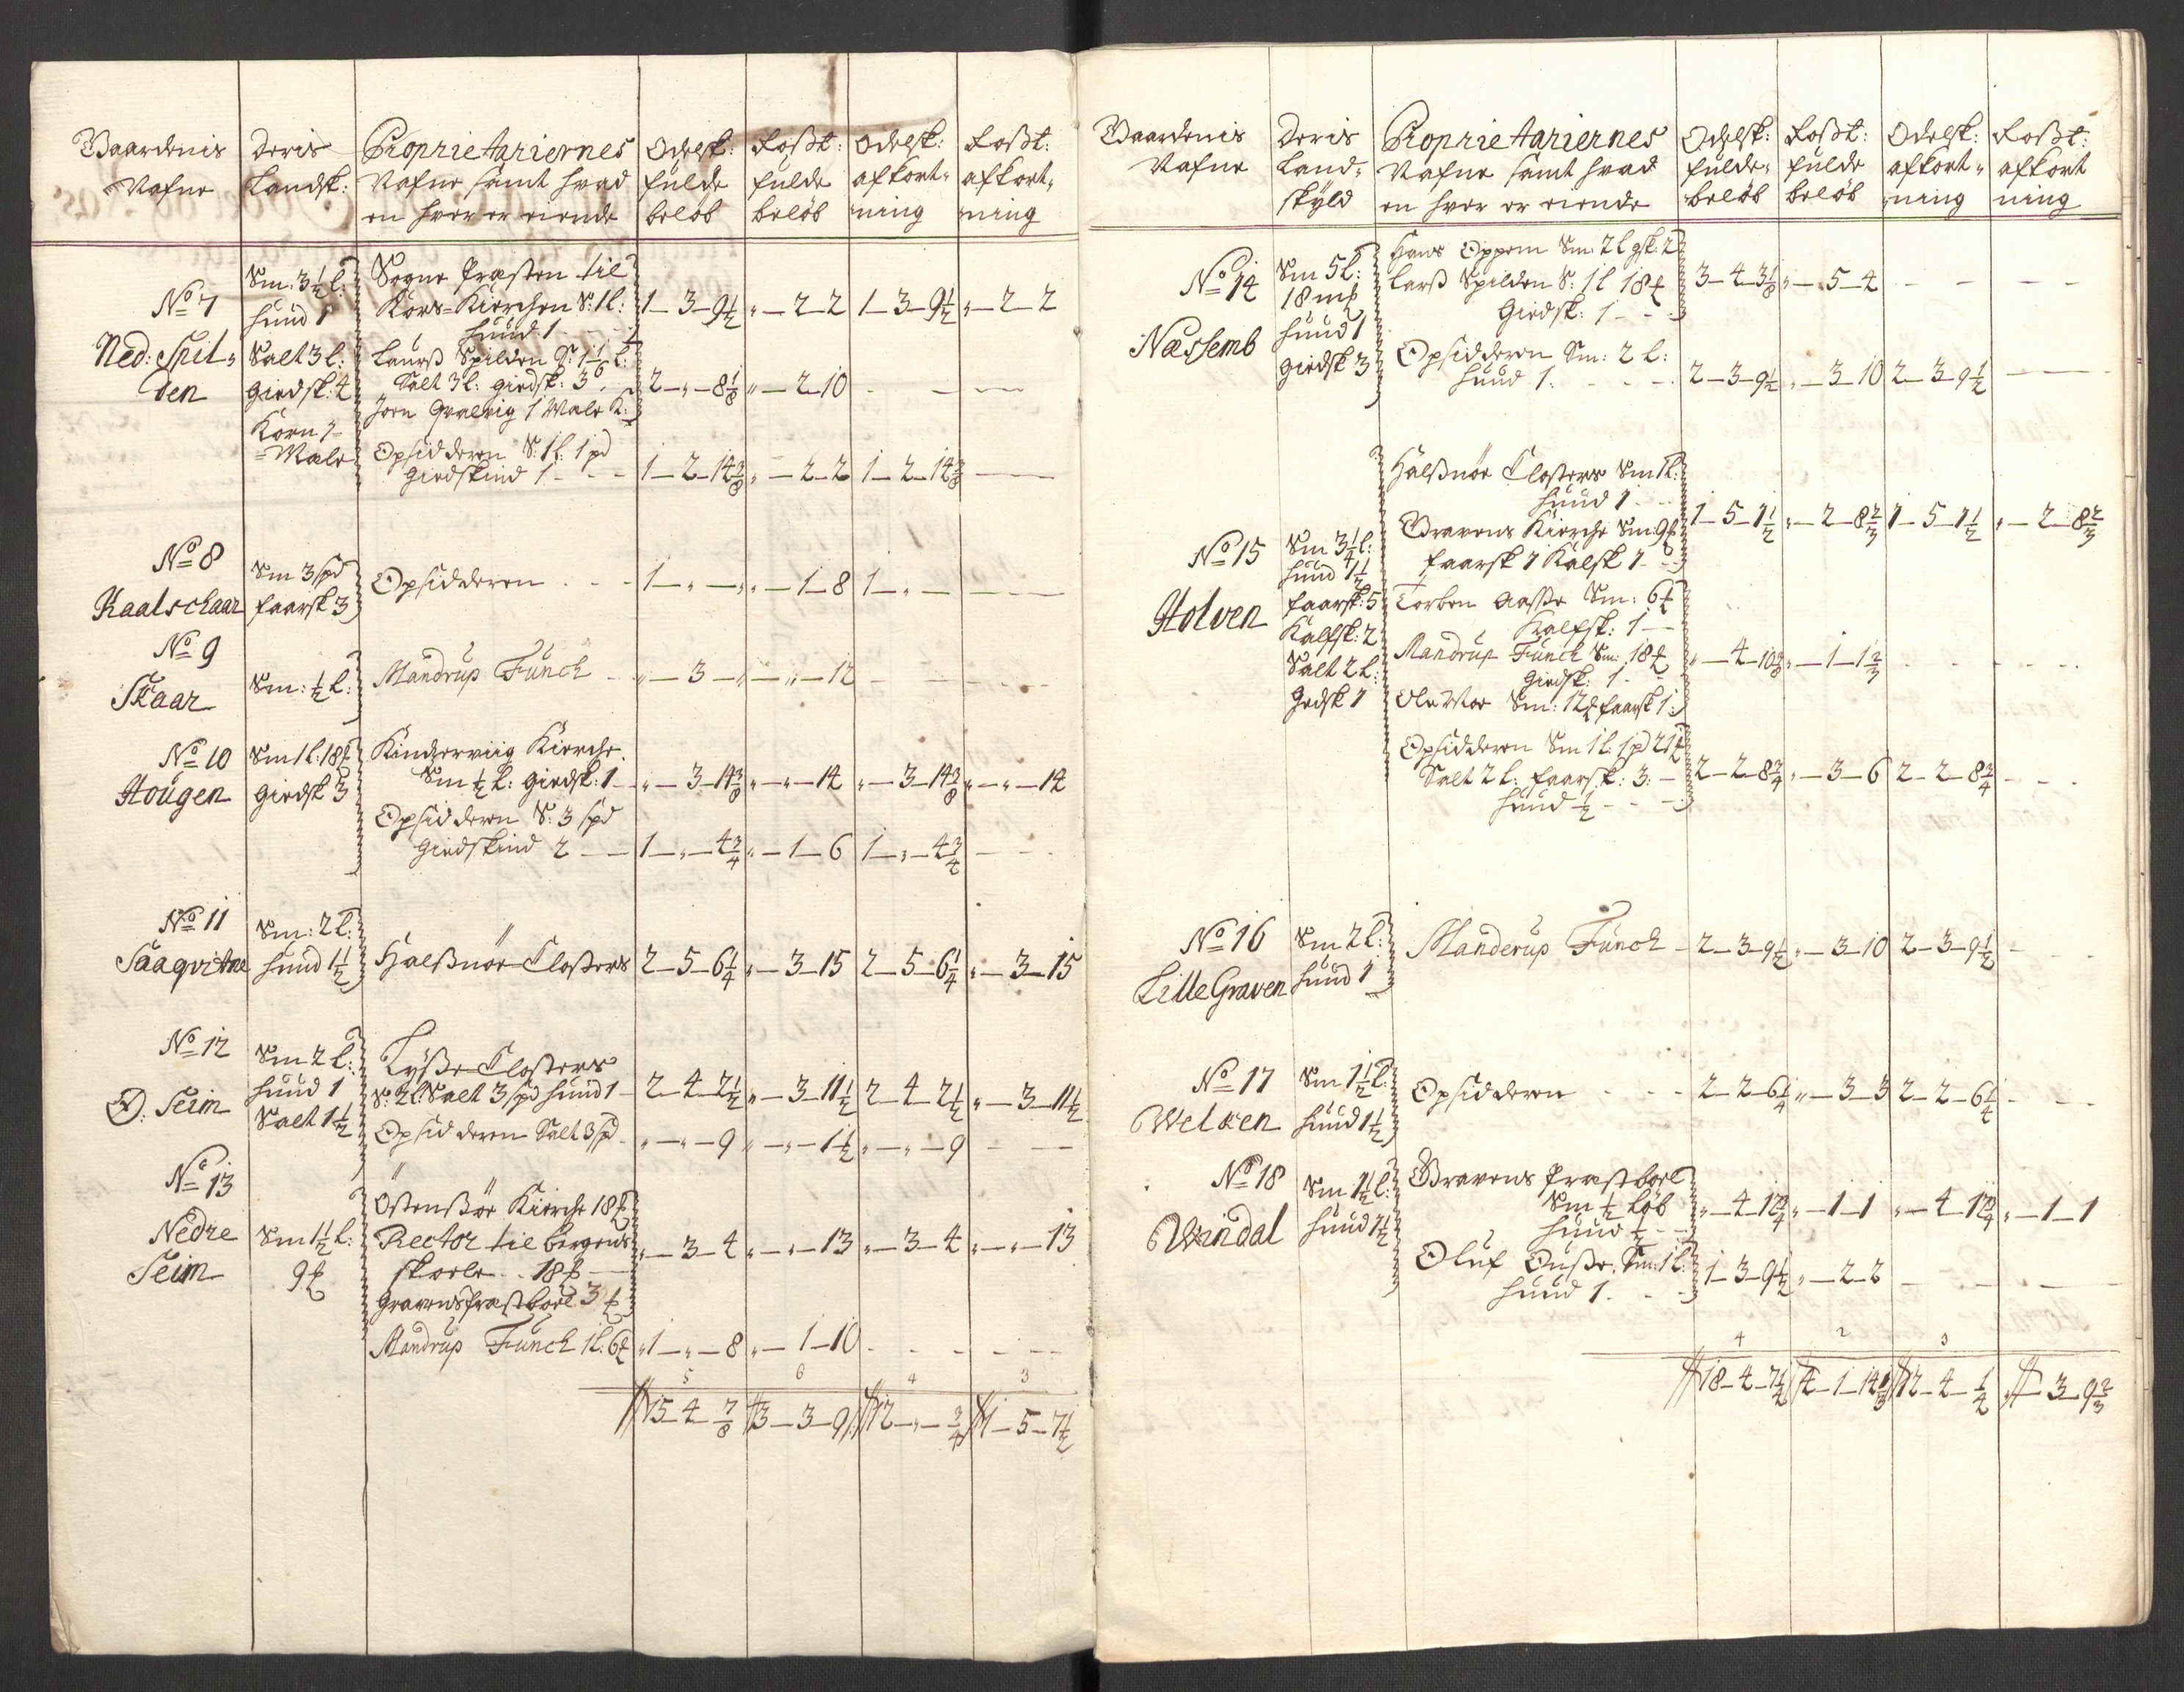 Gaardenis Nafne
Deris Landsk:
Proprietariernes Nafne samt hvad en hver er eiende
Odelsk: fulde beløb
Roßt: fulde beløb
Odelsk: afkort-ning
Roßt: afkort-ning
No 7
Ned: Spil-
den
Sm: 3½ l:
huud 1
Salt 3 l:
giedsk: 4
Korn 1
Male
Sogne Præsten til
Kors-Kierchen S: 1 l:
huud 1 - - -
1 - 3 - 9½ " - 2 - 2 1 - 3 - 9½ " - 2 - 2
Laurß Spilden S: 1⅙ l:
Salt 3 l: giedsk: 3
Jørn Qvalvig 1 Male K:
2 - " - 8⅛ " - 2 - 10 - - -
Opsidderen S: 1 l: 1 pd
giedskind 1 - - -
1 - 2 - 14⅜ " - 2 - 2 1 - 2 - 14⅜ - -
No 8
Kaalschaar
Sm 3 spd
faarsk 3
Opsidderen - - - 1 - " - " " - 1 - 8 1 - " - - -
No 9
Skaar
Sm: ½ l:
Mandrup Funck - " - 3 - " " - " - 12 - - -
No 10
Hougen
Sm 1 l: 18 ℔
giedsk 3
Kinderviig Kierche
Sm ½ l: giedsk: 1 - " - 3 - 14⅜ " - " - 14 " - 3 - 14⅜ " - " - 14
Opsidderen S: 3 spd
giedskind 2 - - 1 - " - 4¾ " - 1 - 6 1 - " - 4¾ - - -
No 11
Saaqvitne
Sm: 2 l:
huud 1½
Halßnøe Closters 2 - 5 - 6¼ " - 3 - 15 2 - 5 - 6¼ " - 3 - 15
No 12
Ø. Seim
Sm 2 l:
huud 1
Salt 1½
Lyße Closters
S: 2 l: Salt 3 spd huud 1 - 2 - 4 - 2½ " - 3 - 11½ 2 - 4 - 2½ " - 3 - 11½
Opsidderen Salt 3 spd " - " - 9 " - " - 1½ " - " - 9 - - -
No 13
Nedre
Seim
Sm 1½ l:
9 ℔
Østensøe Kierche 18 ℔
Rector til bergens
skoele - - 18 ℔
Gravens Præstboel 3 ℔
" - 3 - 4 " - " - 13 " - 3 - 4 " - " - 13
Mandrup Funck 1 l: 6 ℔ " 1 - " - 8 " - 1 - 10 - - - -
5 6 4 3
15 - 4 - ⅞ 3 - 3 - 9 12 - " - ¾ 1 - 5 - 7½
Gaardenis Nafne
Deris Land-skyld
Proprietariernes Nafne samt hvad en hver er eiende
Odelsk: fulde beløb
Roßt: fulde beløb
Odelsk: afkort-ning
Roßt: afkort ning
No 14
Næssemb
Sm 5 l:
18 mk
huud 1
giedsk 3
Hans Oppem Sm: 2 l gsk: 2
Larß Spilden S: 1 l 18 ℔
Giedsk: 1 - - -
3 - 4 - 3⅛ " - 5 - 4 - - - -
Opsidderen Sm: 2 l:
huud 1. - - - 2 - 3 - 9½ " - 3 - 10 2 - 3 - 9½ - -
No 15
Holven
Sm 3¼ l:
huud 1½
faarsk: 5
Kalfsk: 2
Salt 2 l:
Gedsk 1
Halßnøe Closters Sm 1 l:
huud 1 - -
Gravens Kierche Sm: 9 ℔
faarsk 1 Kalfsk 1 - -
1 - 5 - 1½ " - 2 - 8⅔ 1 - 5 - 1½ " - 2 - 8⅔
Torben Aaße Sm: 6 ℔
Kalfsk: 1 -
Mandrup Funck Sm: 18 ℔
Giedsk: 1 -
Ole Moe Sm: 12 ℔ faarsk 1:
" - 4 - 10⅜ " - 1 - 1⅔ - - - -
Opsidderen Sm 1 l: 1 pd 21 ℔
Salt 2 l: faarsk: 3: -
huud ½ - - -
2 - 2 - 8¾ " - 3 - 6 2 - 2 - 8¾ - - -
No 16
Lille Graven
Sm 2 l:
huud 1
Manderup Funck - 2 - 3 - 9½ " - 3 - 10 2 - 3 - 9½ - - -
No 17
Welken
Sm 1½ l:
huud 1½
Opsidderen - - - 2 - 2 - 6¼ " - 3 - 3 2 - 2 - 6¼ - - -
No 18
Windal
Sm 1½ l:
huud 1½
Gravens Præstboel
Sm ½ løb
huud ½ - -
" - 4 - 12¾ " - 1 - 1 " - 4 - 12¾ " - 1 - 1
Oluf Ouße. Sm: 1 l:
huud 1. - - 1 - 3 - 9½ " - 2 - 2 - - - -
4 2 3
18 - 4 - 7½ 4 - 1 - 14⅓ 12 - 4 - ¼ " - 3 - 9⅔